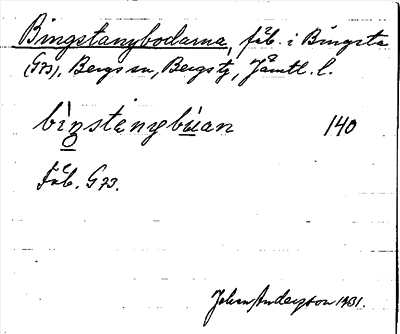 Bingstanybodarna, fäb. i Bingsta
(G73), Bergs sn, Bergs tg, Jämtl. l.
bìn̥stènybùan 140
Fäb. G73.
Johan Anderzson 1931.